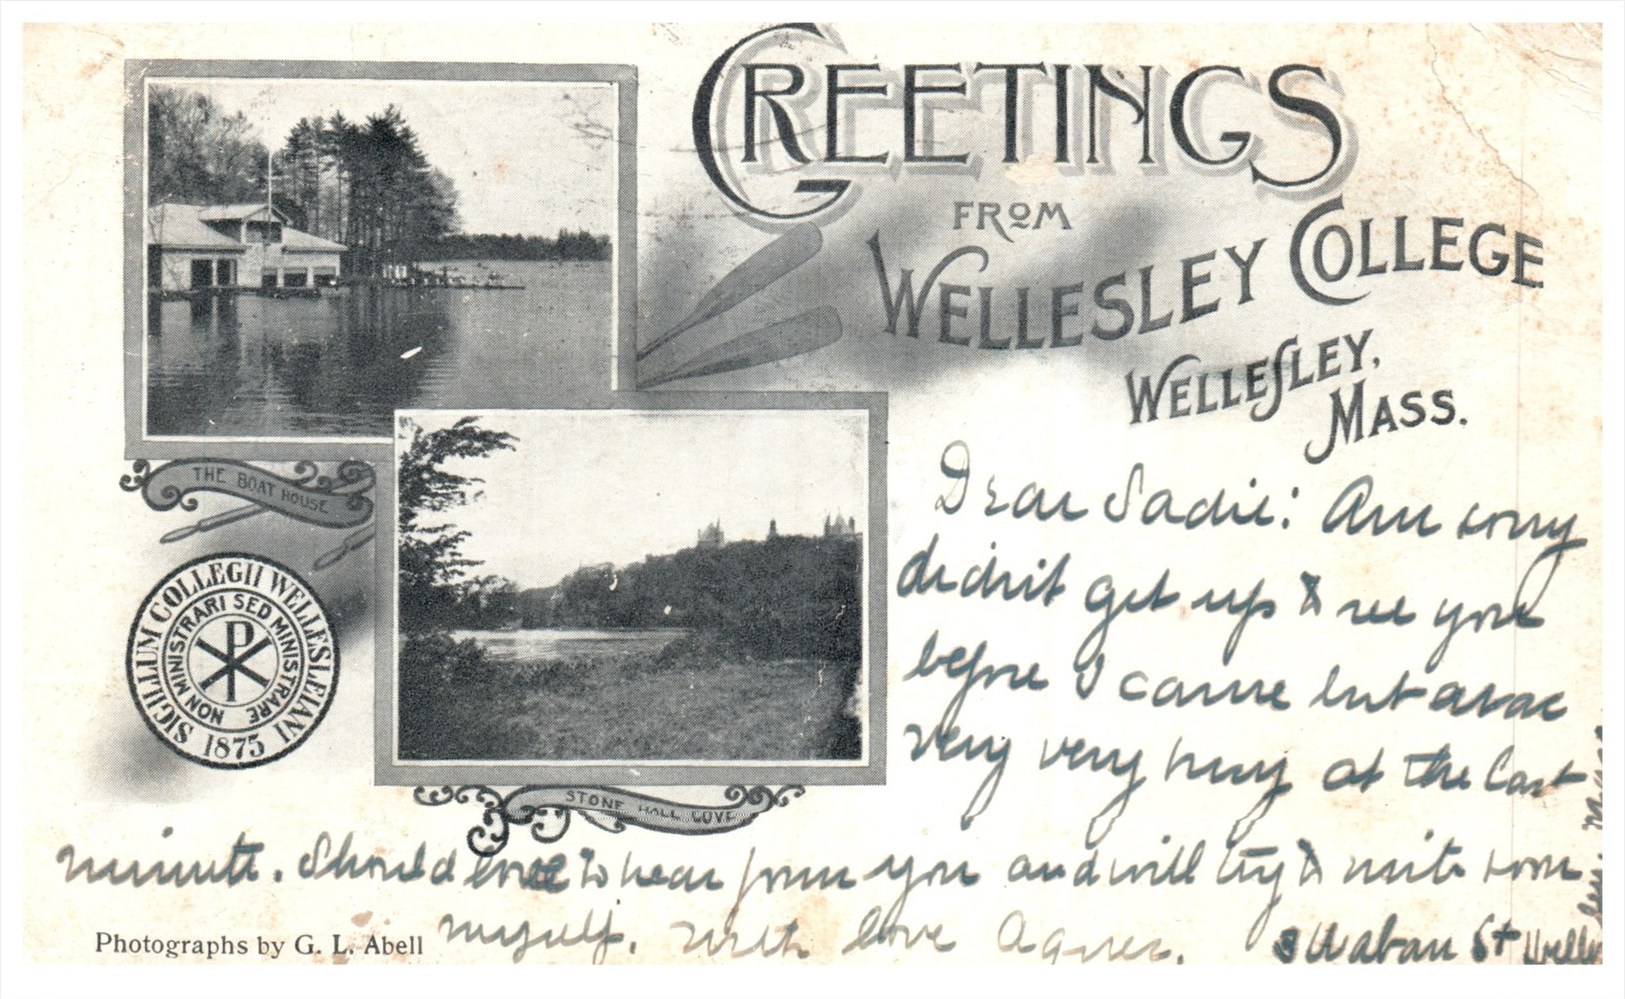 GREETINGS
FROM
WELLESLEY COLLEGE
WELLESLEY,
MASS.
THE BOAT HOUSE
SIGILLUM COLLEGII WELLESLEIANI
NON MINISTRARI SED MINISTRARE
1875
STONE HALL COVE
Dear Sadie: Am sorry
didn't get up to see you
before I came but was
very very busy at the last
minute. Should love to hear from you and will try to write soon
myself. With love Agnes. 3 Waban St
Photographs by G. L. Abell